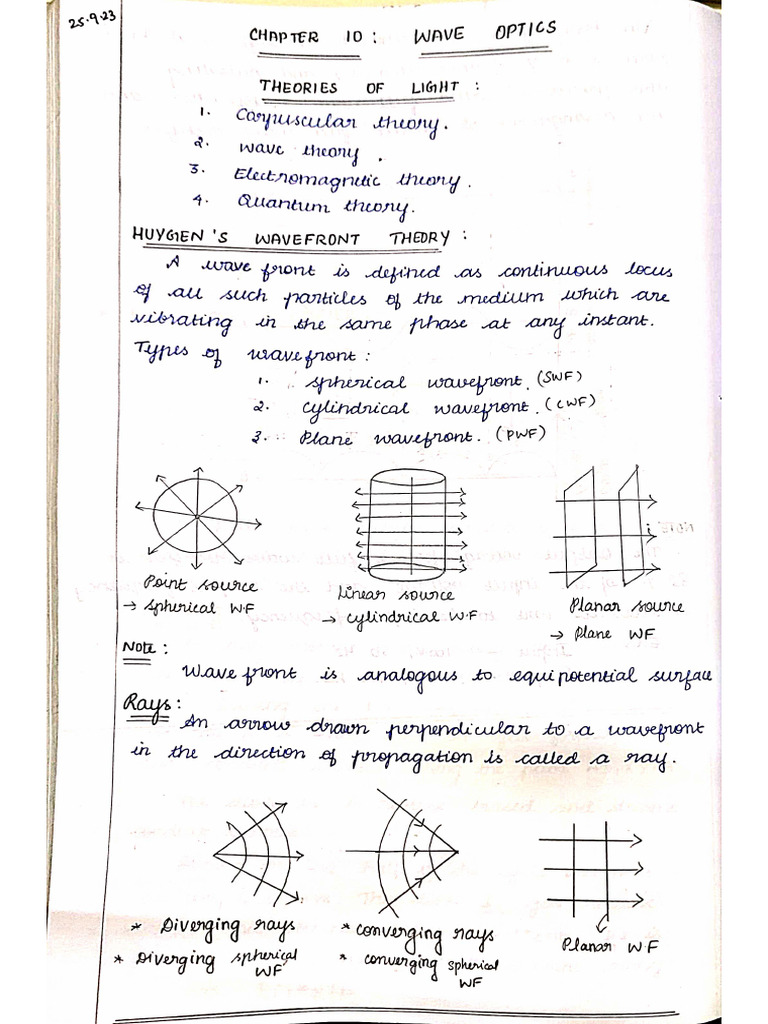 25.9.23
CHAPTER 10: WAVE OPTICS
THEORIES OF LIGHT :
1. Corpuscular theory.
2. wave theory.
3. Electromagnetic theory.
4. Quantum theory.
HUYGEN'S WAVEFRONT THEORY :
A wave front is defined as continuous locus
of all such particles of the medium which are
vibrating in the same phase at any instant.
Types of wavefront :
1. spherical wavefront. (SWF)
2. cylindrical wavefront. (CWF)
3. Plane wavefront. (PWF)
Point source
→ spherical WF
Linear source
→ cylindrical W.F
Planar source
→ Plane WF
Note :
Wave front is analogous to equipotential surface
Rays :
An arrow drawn perpendicular to a wavefront
in the direction of propagation is called a ray.
* Diverging rays
* Diverging spherical
WF
* converging rays
* converging spherical
WF
Planar W.F